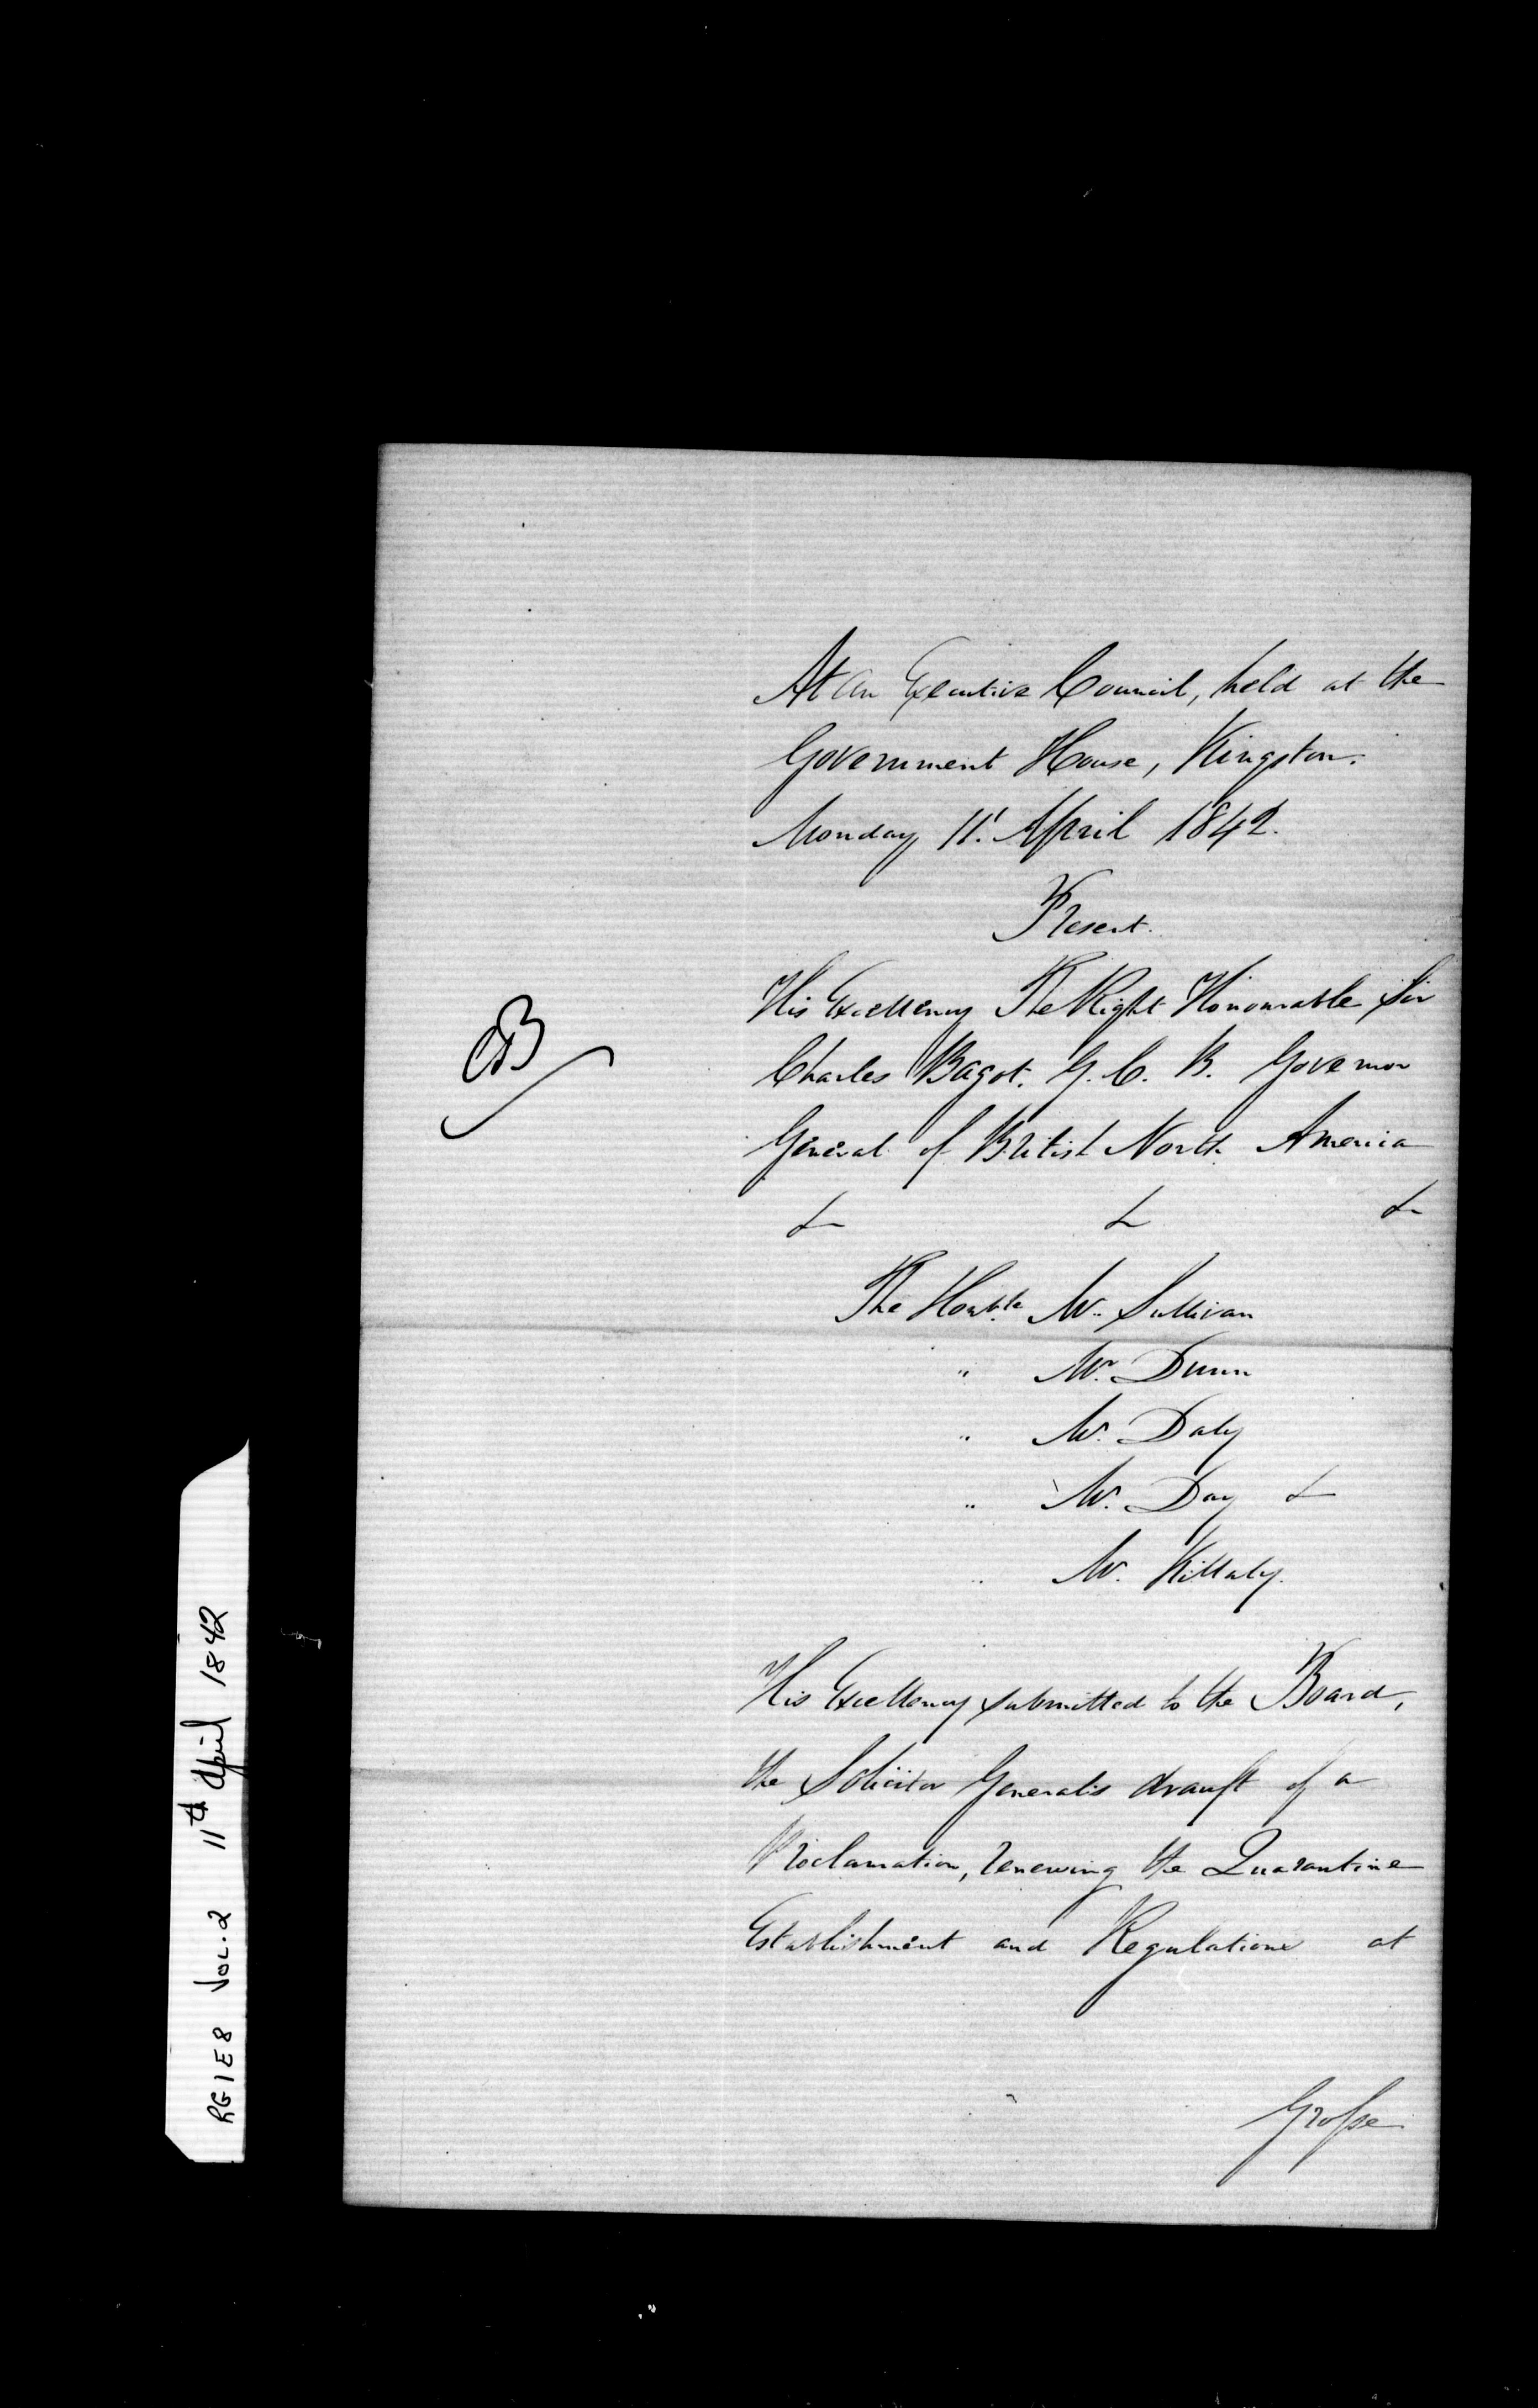 At an Executive Council, held at the
Government House, Kingston.
Monday 11' April 1842.
Present.
His Excellency The Right Honourable Sir
Charles Bagot. G. C. B. Governor
General of British North America
& & &
The Honble. Mr. Sullivan
" Mr. Dunn
" Mr. Daly
" Mr. Day &
" Mr. Killaly.
His Excellency submitted to the Board,
the Solicitor General's drauft of a
Proclamation, renewing the Quarantine
Establishment and Regulations at
Grosse
CB
RG1E8 VOL.2 11th April 1842